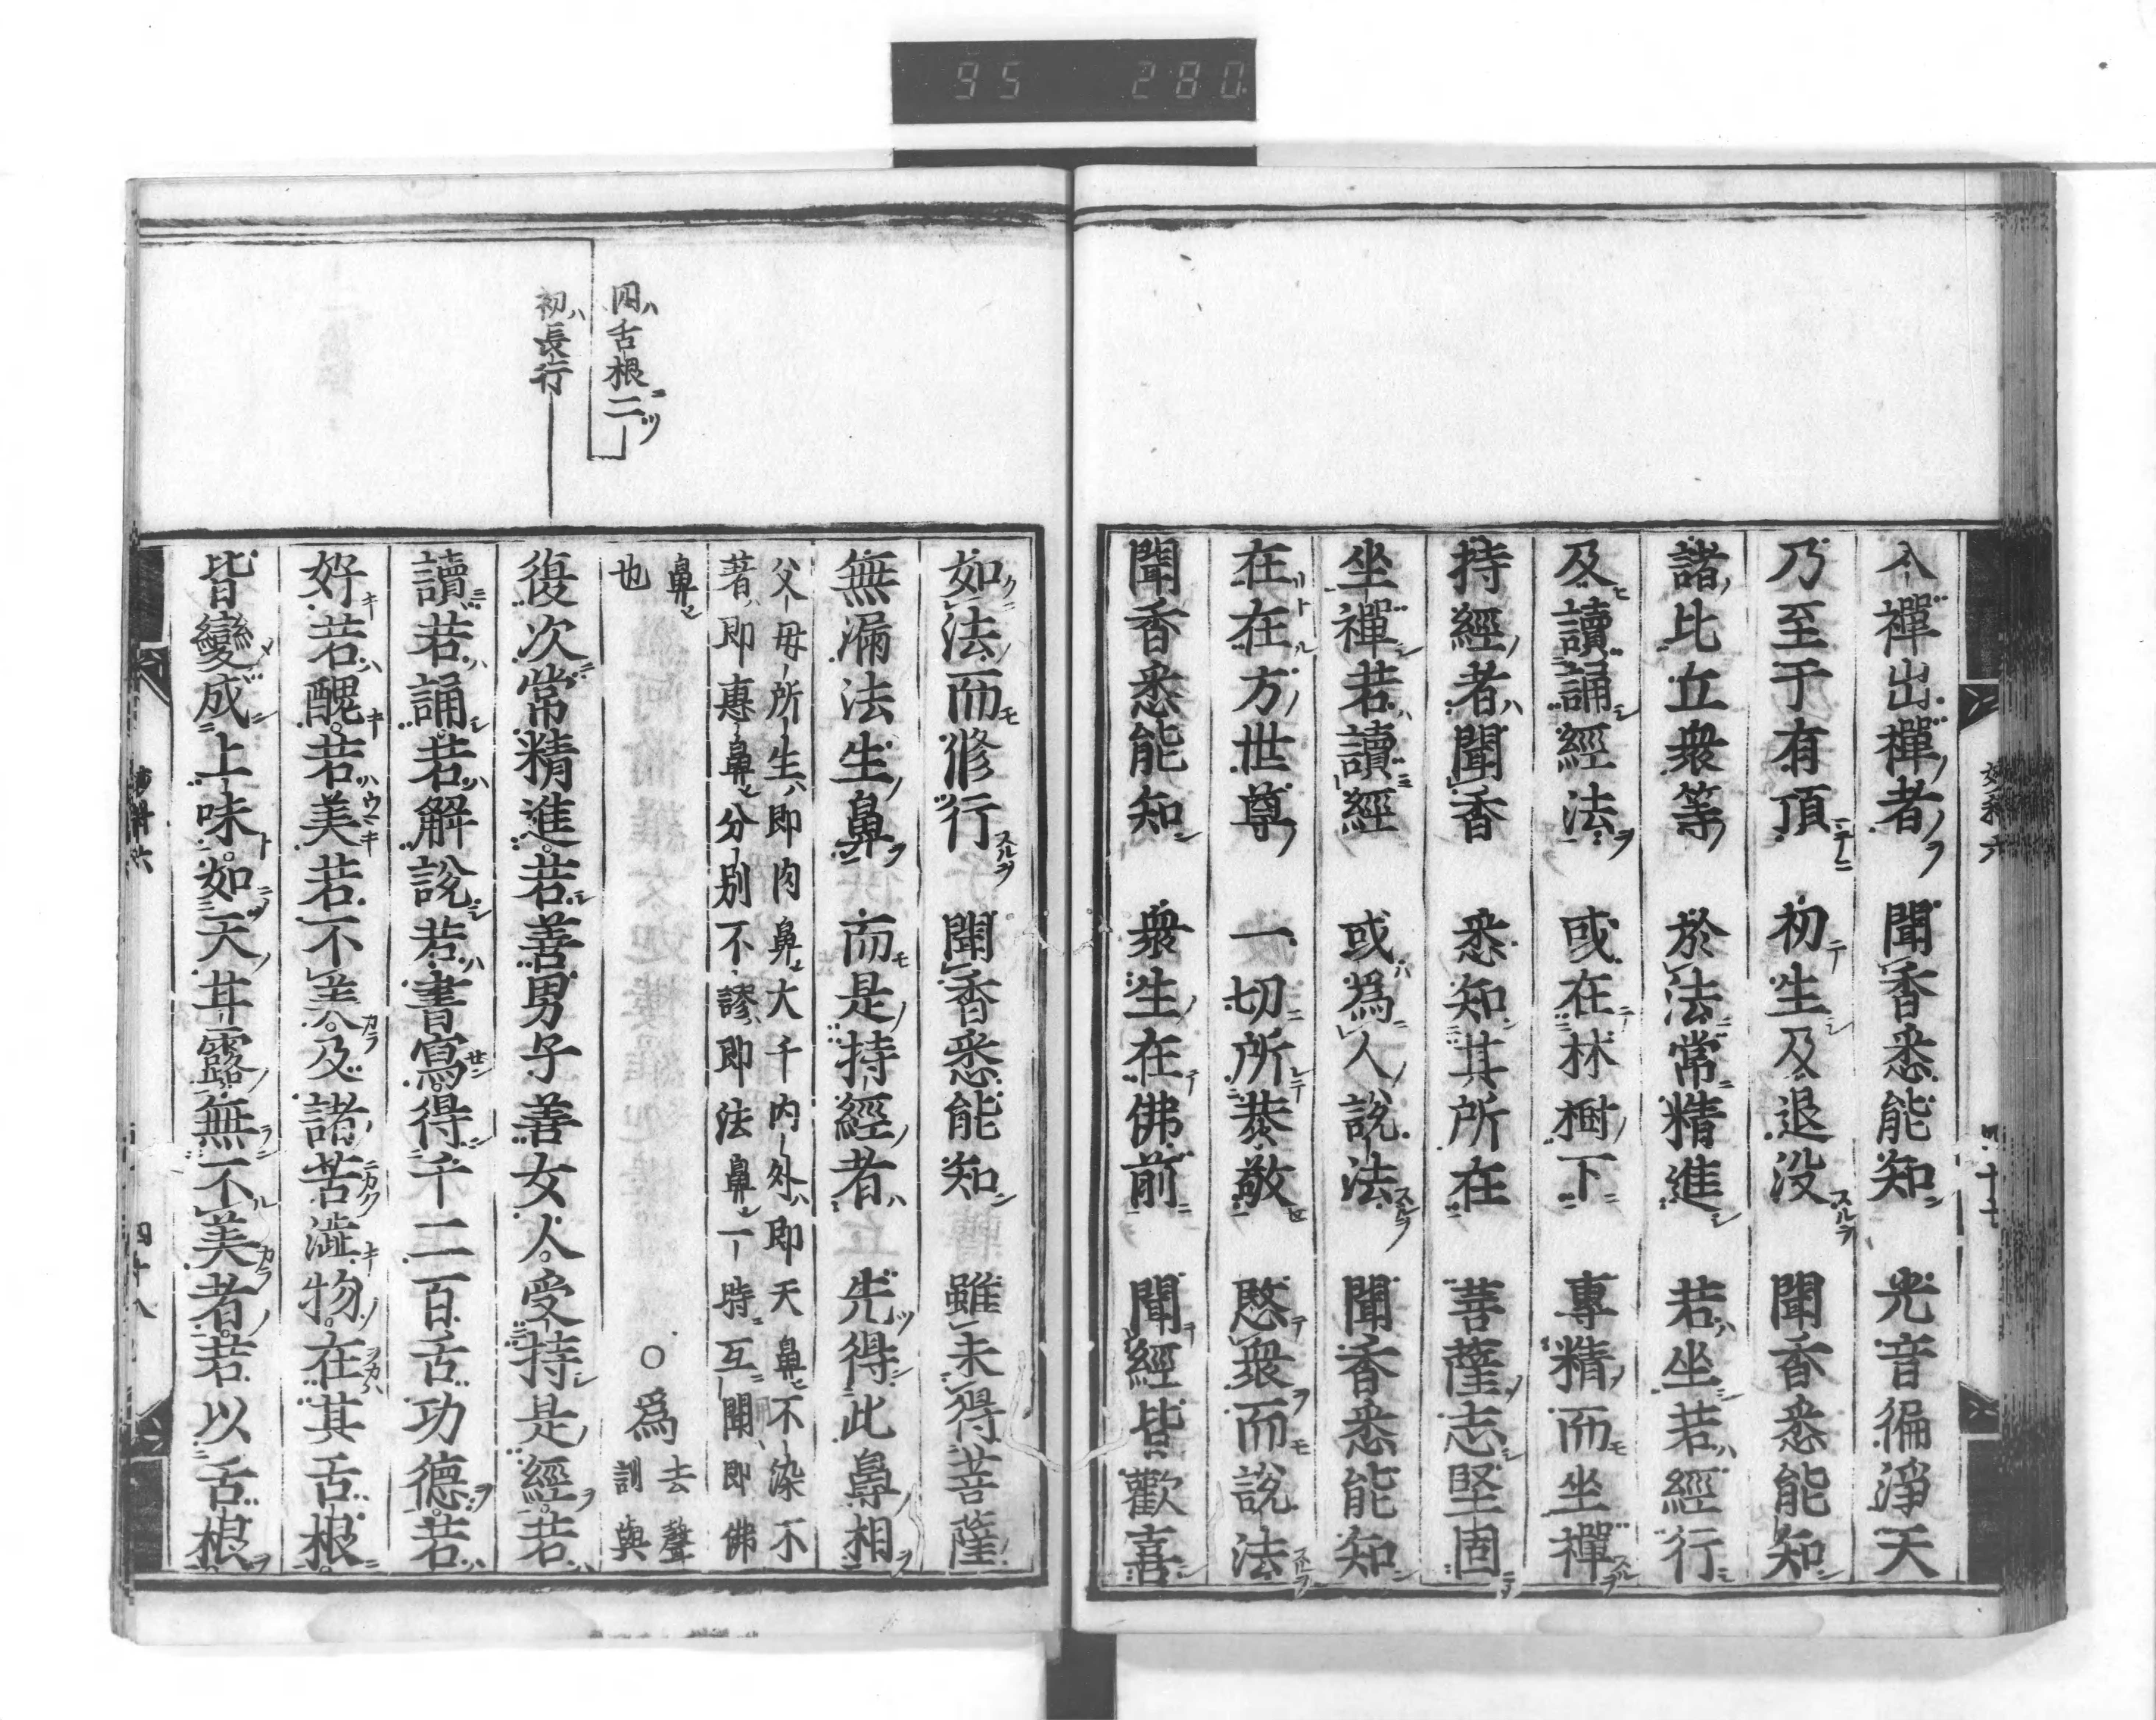 95 280
入禪出禪者 聞香悉能知 光音徧淨天
乃至于有頂 初生及退没 聞香悉能知
諸比丘衆等 於法常精進 若坐若經行
及讀誦經法 或在林樹下 專精而坐禪
持經者聞香 悉知其所在 菩薩志堅固
坐禪若讀經 或爲人說法 聞香悉能知
在在方世尊 一切所恭敬 愍衆而說法
聞香悉能知 衆生在佛前 聞經皆歡喜
四舌根二
初長行
如法而修行 聞香悉能知 雖未得菩薩
無漏法生鼻 而是持經者 先得此鼻相
父母所生即肉鼻大千内外即天鼻不染不
著即慧鼻分別不謬即法鼻一時互聞即佛
鼻
也
○爲
去聲
訓與
復次常精進若善男子善女人受持是經若
讀若誦若解說若書寫得千二百舌功德若
好若醜若美若不美及諸苦澁物在其舌根
皆變成上味如天甘露無不美者若以舌根
四十八